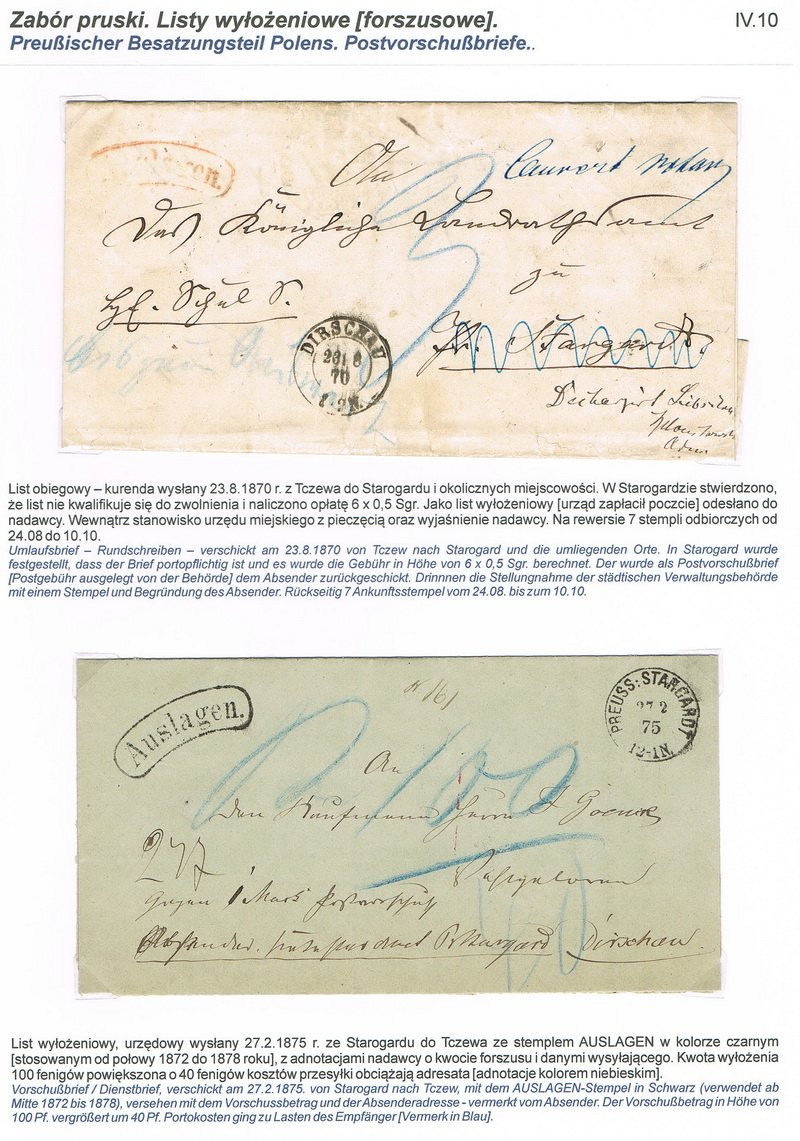 Zabór pruski. Listy wyłożeniowe [forszusowe].
IV.10
Preußischer Besatzungsteil Polens. Postvorschußbriefe..
An
Das Königliche Landrathsamt
zu
DIRSCHAU
70
Pr. Stargardt.
List obiegowy – kurenda wysłany 23.8.1870 r. z Tczewa do Starogardu i okolicznych miejscowości. W Starogardzie stwierdzono,
że list nie kwalifikuje się do zwolnienia i naliczono opłatę 6 x 0,5 Sgr. Jako list wyłożeniowy [urząd zapłacił poczcie] odesłano do
nadawcy. Wewnątrz stanowisko urzędu miejskiego z pieczęcią oraz wyjaśnienie nadawcy. Na rewersie 7 stempli odbiorczych od
24.08 do 10.10.
Umlaufsbrief – Rundschreiben – verschickt am 23.8.1870 von Tczew nach Starogard und die umliegenden Orte. In Starogard wurde
festgestellt, dass der Brief portopflichtig ist und es wurde die Gebühr in Höhe von 6 x 0,5 Sgr. berechnet. Der wurde als Postvorschußbrief
[Postgebühr ausgelegt von der Behörde] dem Absender zurückgeschickt. Drinnnen die Stellungnahme der städtischen Verwaltungsbehörde
mit einem Stempel und Begründung des Absender. Rückseitig 7 Ankunftsstempel vom 24.08. bis zum 10.10.
Auslagen.
PREUSS: STARGARDT
27 2
75
12-1N.
100
An
den Kaufmann Herrn
Gegen 1 Mark Postvorschuß
Dirschau.
40
List wyłożeniowy, urzędowy wysłany 27.2.1875 r. ze Starogardu do Tczewa ze stemplem AUSLAGEN w kolorze czarnym
[stosowanym od połowy 1872 do 1878 roku], z adnotacjami nadawcy o kwocie forszusu i danymi wysyłającego. Kwota wyłożenia
100 fenigów powiększona o 40 fenigów kosztów przesyłki obciążają adresata [adnotacje kolorem niebieskim].
Vorschußbrief / Dienstbrief, verschickt am 27.2.1875. von Starogard nach Tczew, mit dem AUSLAGEN-Stempel in Schwarz (verwendet ab
Mitte 1872 bis 1878), versehen mit dem Vorschussbetrag und der Absenderadresse - vermerkt vom Absender. Der Vorschußbetrag in Höhe von
100 Pf. vergrößert um 40 Pf. Portokosten ging zu Lasten des Empfänger [Vermerk in Blau].